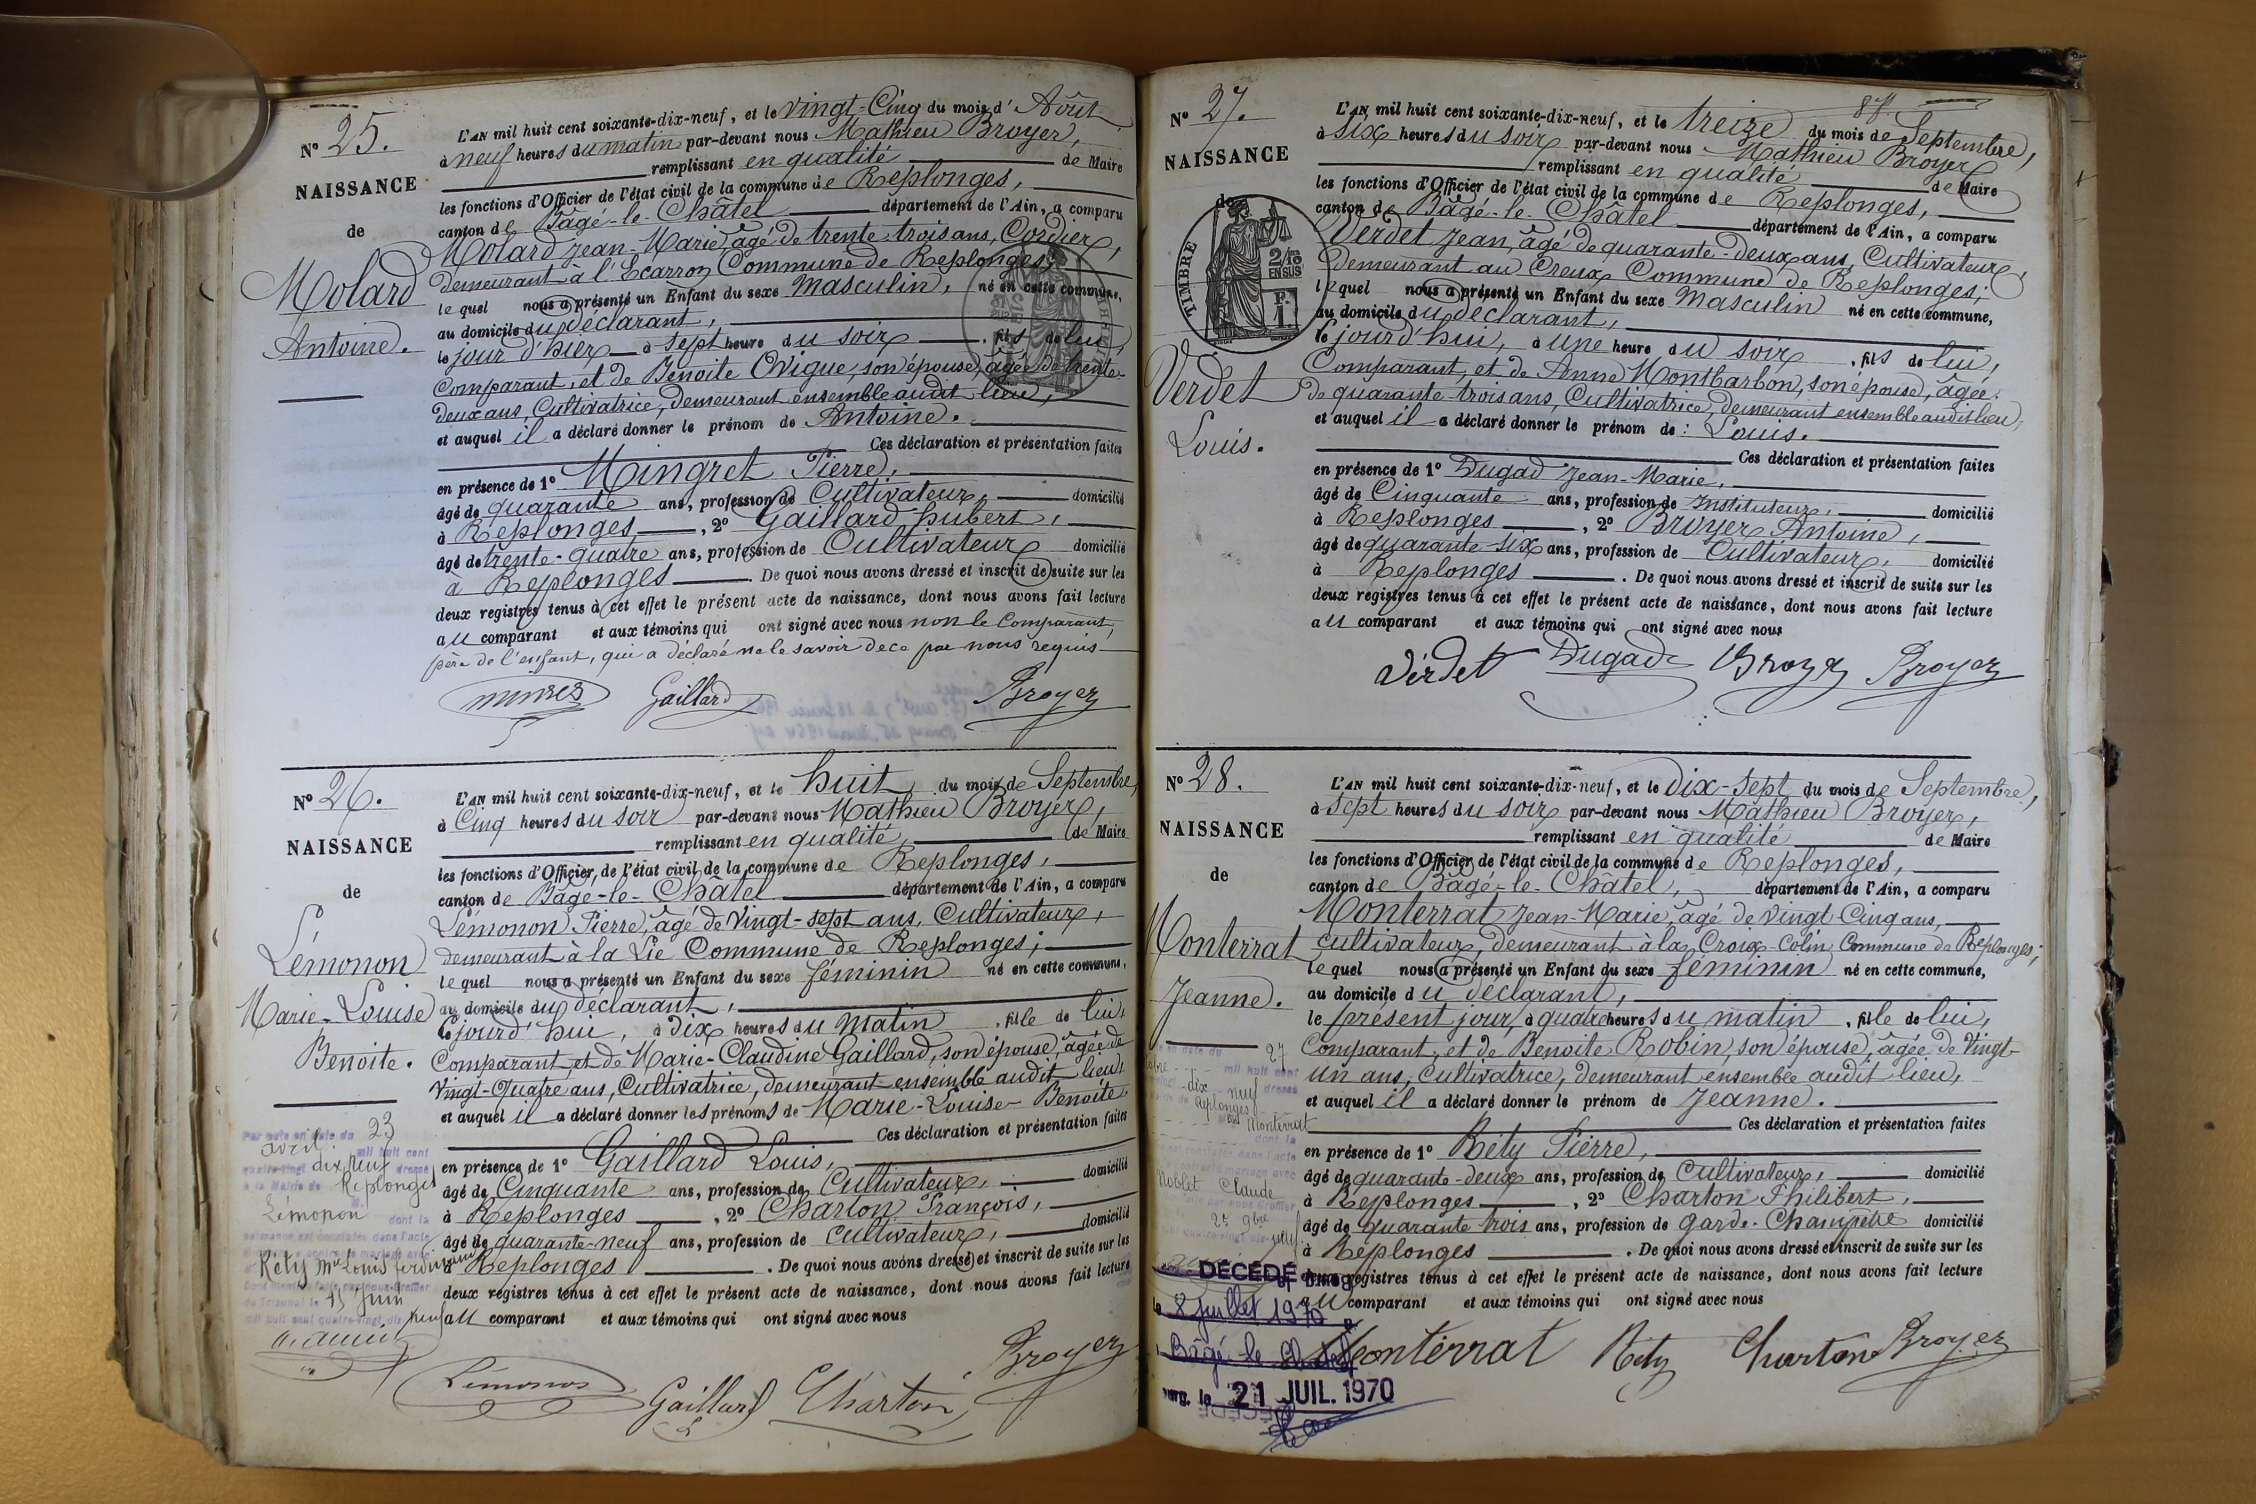 N° 25.
NAISSANCE
de
Molard
Antoine.
L'AN mil huit cent soixante-dix-neuf, et le vingt-Cinq du mois d'Août
à neuf heures du matin par-devant nous Mathieu Broyer,
remplissant en qualité de Maire
les fonctions d'Officier de l'état civil de la commune de Replonges,
canton de Bâgé-le-Châtel département de l'Ain, a comparu
Molard Jean-Marie, âgé de trente-trois ans, Cordier,
demeurant à l'Ecarron Commune de Replonges;
le quel nous a présenté un Enfant du sexe Masculin, né en cette commune,
au domicile du déclarant,
le jour d'hier, à sept heure du soir, fils de lui,
Comparant, et de Benoite Ovigue, son épouse, âgée de trente-
deux ans, Cultivatrice, demeurant ensemble audit lieu,
et auquel il a déclaré donner le prénom de Antoine.
Ces déclaration et présentation faites
en présence de 1° Mingret Pierre,
âgé de quarante ans, profession de Cultivateur, domicilié
à Replonges, 2° Gaillard hubert,
âgé de trente-quatre ans, profession de Cultivateur domicilié
à Replonges. De quoi nous avons dressé et inscrit de suite sur les
deux registres tenus à cet effet le présent acte de naissance, dont nous avons fait lecture
au comparant et aux témoins qui ont signé avec nous non le Comparant,
père de l'enfant, qui a déclaré ne le savoir de ce par nous requis
Gaillard Broyer
N° 26.
NAISSANCE
de
Lémonon
Marie-Louise
Benoite.
L'AN mil huit cent soixante-dix-neuf, et le huit du mois de Septembre,
à Cinq heures du soir par-devant nous Mathieu Broyer,
remplissant en qualité de Maire
les fonctions d'Officier de l'état civil de la commune de Replonges,
canton de Bâgé-le-Châtel département de l'Ain, a comparu
Lémonon Pierre, âgé de Vingt-sept ans, Cultivateur,
demeurant à la Lie Commune de Replonges;
le quel nous a présenté un Enfant du sexe féminin né en cette commune,
au domicile du déclarant,
le jourd'hui, à dix heures du Matin, fille de lui,
Comparant, et de Marie-Claudine Gaillard, son épouse, âgée de
Vingt-Quatre ans, Cultivatrice, demeurant ensemble audit lieu,
et auquel il a déclaré donner les prénoms de Marie-Louise-Benoite
Ces déclaration et présentation faites
en présence de 1° Gaillard Louis,
âgé de Cinquante ans, profession de Cultivateur, domicilié
à Replonges, 2° Charton François,
âgé de quarante-neuf ans, profession de Cultivateur, domicilié
à Replonges. De quoi nous avons dressé et inscrit de suite sur les
deux registres tenus à cet effet le présent acte de naissance, dont nous avons fait lecture
au comparant et aux témoins qui ont signé avec nous
Par acte en date du 23
avril mil huit cent
quatre-vingt dix neuf dressé
à la Mairie de Replonges
Lémonon dont la
Réty
15 Juin
Lémonon Gaillard Charton Broyer
N° 27.
NAISSANCE
de
TIMBRE
2/10
EN SUS
Verdet
Louis.
L'AN mil huit cent soixante-dix-neuf, et le treize du mois de Septembre,
à six heures du soir par-devant nous Mathieu Broyer
remplissant en qualité de Maire
les fonctions d'Officier de l'état civil de la commune de Replonges,
canton de Bâgé-le-Châtel département de l'Ain, a comparu
Verdet Jean, âgé de quarante-deux ans, Cultivateur,
demeurant au Creux Commune de Replonges;
le quel nous a présenté un Enfant du sexe Masculin né en cette commune,
au domicile du déclarant,
le jourd'hui, à une heure du soir, fils de lui,
Comparant, et de Anne Montbarbon, son épouse, âgée
de quarante-trois ans, Cultivatrice, demeurant ensemble audit lieu,
et auquel il a déclaré donner le prénom de : Louis.
Ces déclaration et présentation faites
en présence de 1° Dugad Jean-Marie,
âgé de Cinquante ans, profession de Instituteur, domicilié
à Replonges, 2° Broyer Antoine,
âgé de quarante-six ans, profession de Cultivateur, domicilié
à Replonges. De quoi nous avons dressé et inscrit de suite sur les
deux registres tenus à cet effet le présent acte de naissance, dont nous avons fait lecture
au comparant et aux témoins qui ont signé avec nous
Verdet Dugad Broyer Broyer
N° 28.
NAISSANCE
de
Monterrat
Jeanne.
L'AN mil huit cent soixante-dix-neuf, et le dix-sept du mois de Septembre,
à sept heures du soir par-devant nous Mathieu Broyer,
remplissant en qualité de Maire
les fonctions d'Officier de l'état civil de la commune de Replonges,
canton de Bâgé-le-Châtel, département de l'Ain, a comparu
Monterrat Jean-Marie, âgé de vingt Cinq ans,
cultivateur, demeurant à la Croix-Colin Commune de Replonges;
le quel nous a présenté un Enfant du sexe féminin né en cette commune,
au domicile du déclarant,
le présent jour, à quatre heures du matin, fille de lui,
Comparant, et de Benoite Robin, son épouse, âgée de Vingt-
un ans, Cultivatrice, demeurant ensemble audit lieu,
et auquel il a déclaré donner le prénom de Jeanne.
Ces déclaration et présentation faites
en présence de 1° Réty Pierre,
âgé de quarante-deux ans, profession de Cultivateur, domicilié
à Replonges, 2° Charton Philibert,
âgé de quarante trois ans, profession de garde-Champêtre domicilié
à Replonges. De quoi nous avons dressé et inscrit de suite sur les
deux registres tenus à cet effet le présent acte de naissance, dont nous avons fait lecture
au comparant et aux témoins qui ont signé avec nous
27
mil huit cent
dix-neuf dressé
Replonges
Monterrat
dont la
Noblet Claude
DÉCÉDÉ
le 8 Juillet 1970
Bâgé le Châtel
le 21 JUIL. 1970
Monterrat Réty Charton Broyer